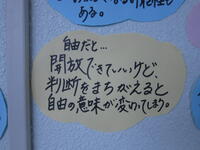 ある。
自由だと…
開放できていいけど、
判断をまちがえると
自由の意味が変ってしまう。